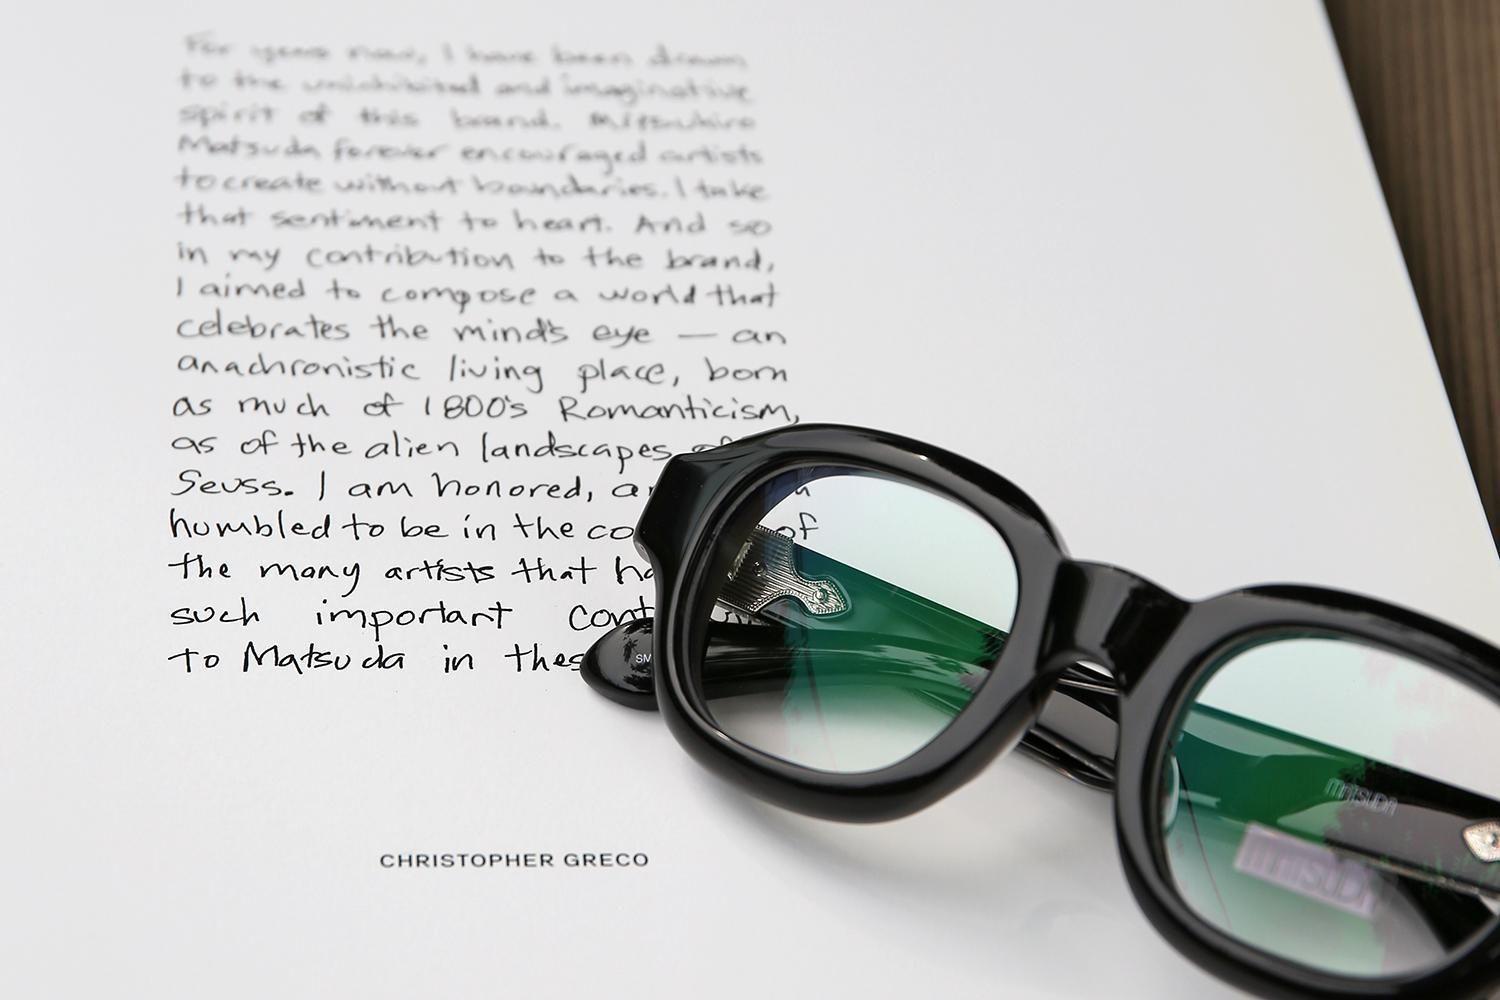 For years now, I have been drawn
to the uninhibited and imaginative
spirit of this brand. Mitsuhiro
Matsuda forever encouraged artists
to create without boundaries. I take
that sentiment to heart. And so
in my contribution to the brand,
I aimed to compose a world that
celebrates the mind's eye — an
anachronistic living place, born
as much of 1800's Romanticism,
as of the alien landscapes of
Seuss. I am honored,
humbled to be in the co of
the many artists that ha
such important cont
to Matsuda in thes
SM
CHRISTOPHER GRECO
MATSUDA
MATSUDA